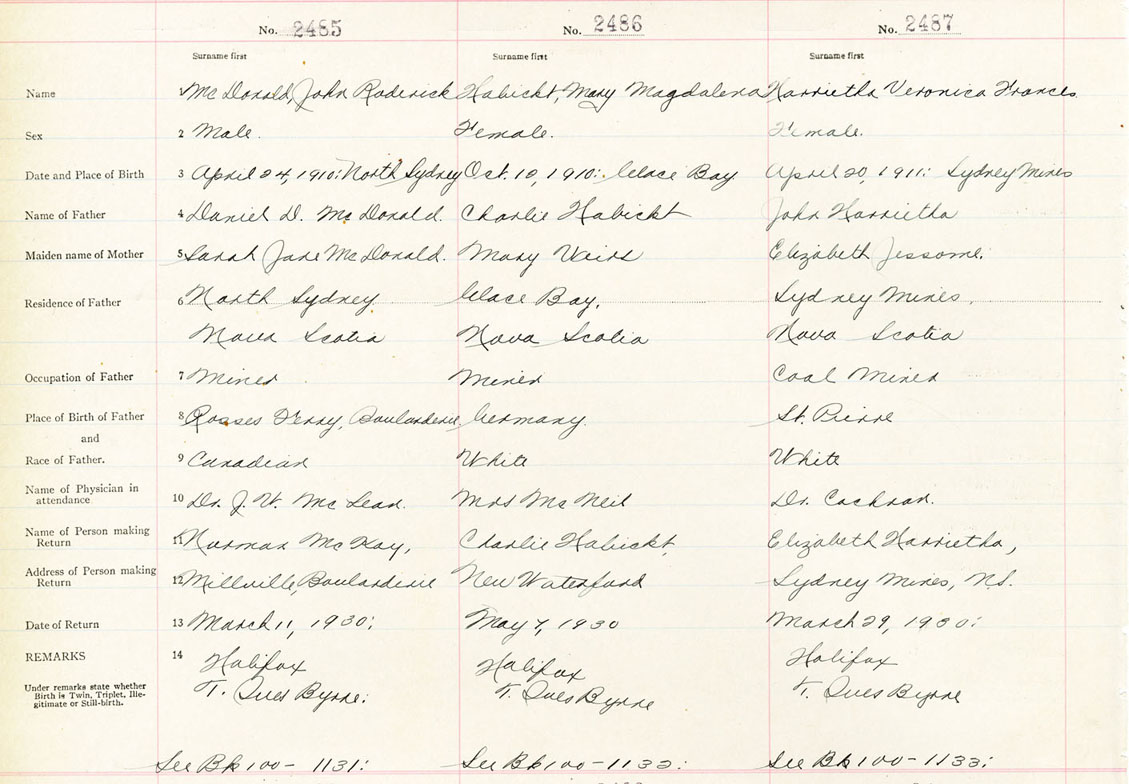 No. 2485 No. 2486 No. 2487
Surname first Surname first Surname first
Name 1 McDonald, John Roderick Habickt, Mary Magdalena Harrietha Veronica Frances
Sex 2 Male. Female. Female.
Date and Place of Birth 3 April 24, 1910: North Sydney Oct. 10, 1910: Glace Bay April 20, 1911: Sydney Mines
Name of Father 4 Daniel D. McDonald. Charlie Habickt John Harrietha
Maiden name of Mother 5 Sarah Jane McDonald. Mary Elizabeth Jessome.
Residence of Father 6 North Sydney Glace Bay, Sydney Mines,
Nova Scotia Nova Scotia Nova Scotia
Occupation of Father 7 Miner Miner Coal Miner
Place of Birth of Father 8 Rosses Ferry, Boularderie Germany. St. Pierre
and
Race of Father. 9 Canadian White White
Name of Physician in
attendance 10 Dr. J. W. McLean. Mrs McNeil Dr. Cochran.
Name of Person making
Return 11 Norman McKay, Charlie Habickt Elizabeth Harrietha,
Address of Person making
Return 12 Millville, Boularderie New Waterford Sydney Mines, N.S.
Date of Return 13 March 11, 1930: May 7, 1930 March 29, 1930:
REMARKS 14 Halifax Halifax Halifax
Under remarks state whether T. Ives Byrne: T. Ives Byrne T. Ives Byrne
Birth is Twin, Triplet, Ille-
gitimate or Still-birth.
See Bk 100 - 1131: See Bk 100 - 1132: See Bk 100 - 1133: